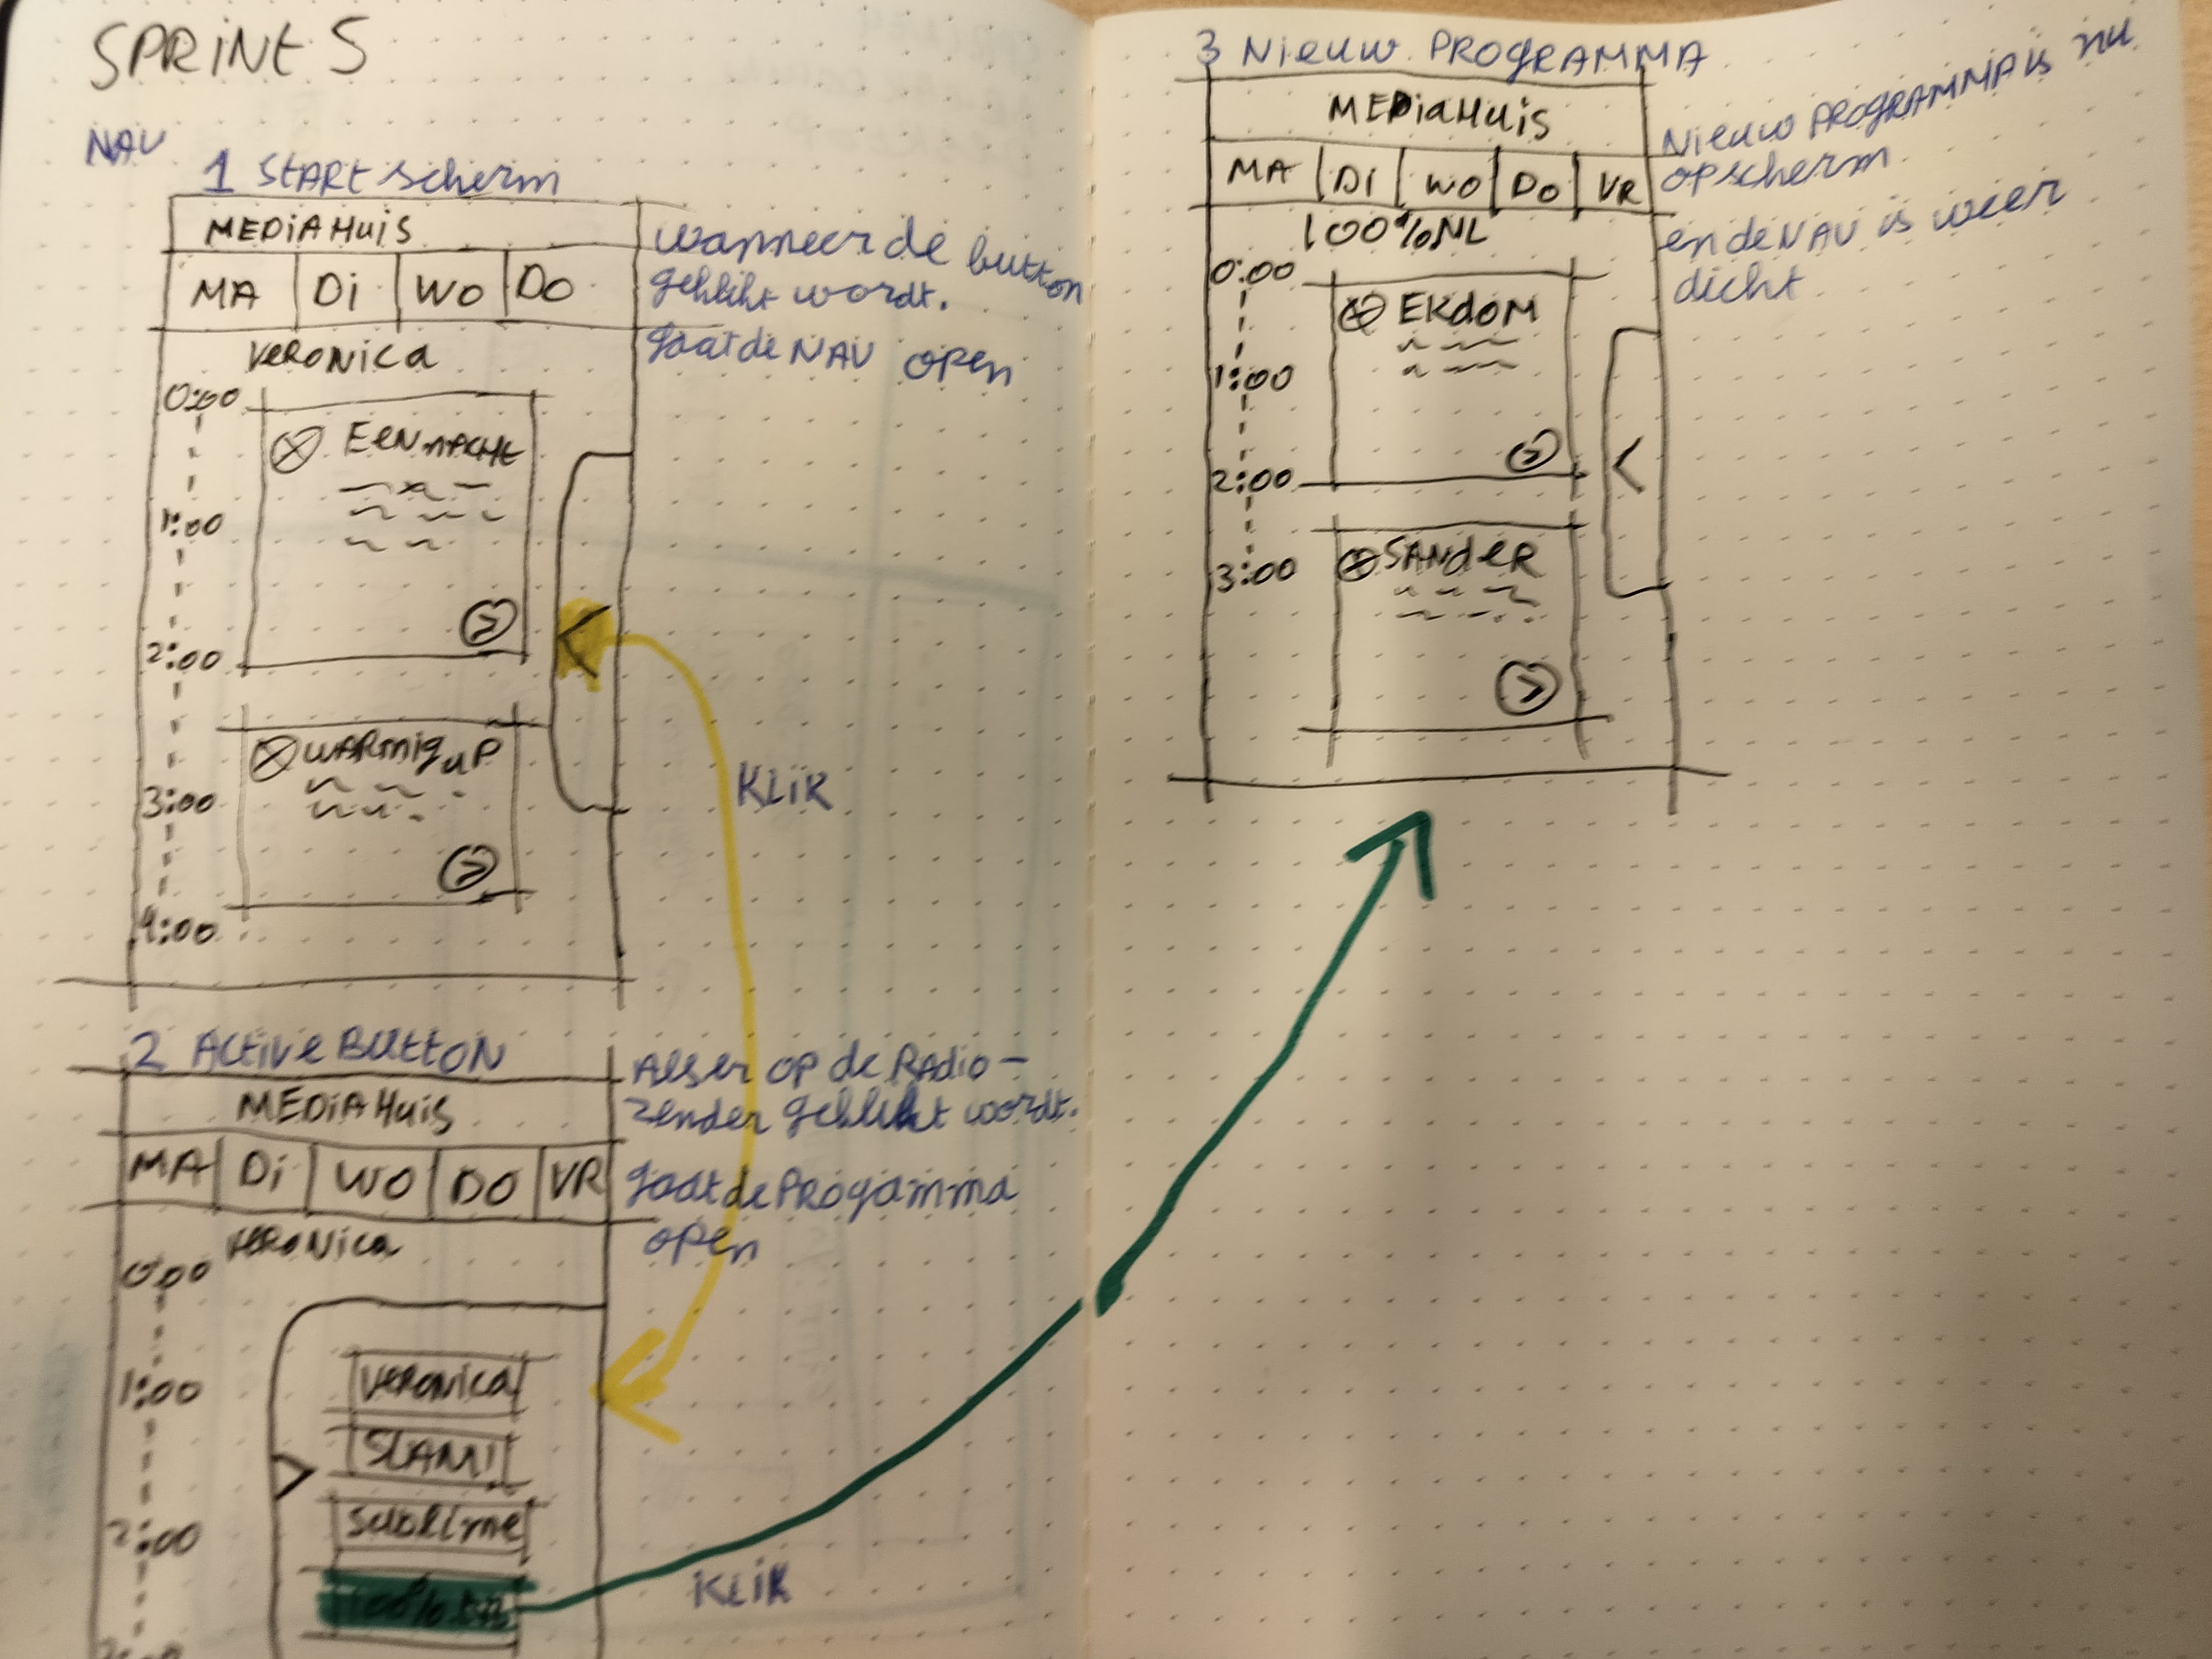 SPRINT 5
NAV
1 START scherm
MEDIAHuis
MA Di WO DO
VERONICA
0:00
EEN NACHT
1:00
2:00
WARMIG UP
3:00
4:00
wanneer de button
geklikt wordt.
gaat de NAV open
KLIK
2 ACtive BUttON
MEDiAHuis
MA Di WO DO VR
VERONica
0:00
1:00
VERONICA
SLAM!
2:00
SUBLIME
Als er OP de RAdio-
zender geklikt wordt.
gaat de PROgamma
open
KLIK
3 Nieuw PROgRAMMA
MEDiaHuis
MA Di WO DO VR
100%NL
0:00
EKdOM
1:00
2:00
SANdeR
3:00
Nieuw PROgRAMMA is nu
op scherm
en de NAV is weer
dicht